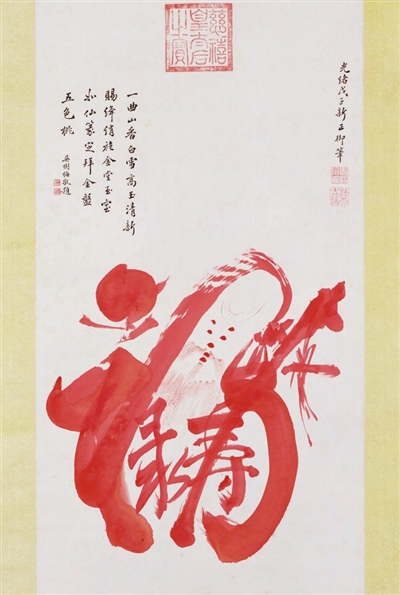 慈禧
皇太后
之寶
光緒戊子新正御筆
一曲山香白雪高玉清新
賜絳綃袍金堂玉室
仙篆定拜金盤
五色桃
吳樹梅敬題
禄寿